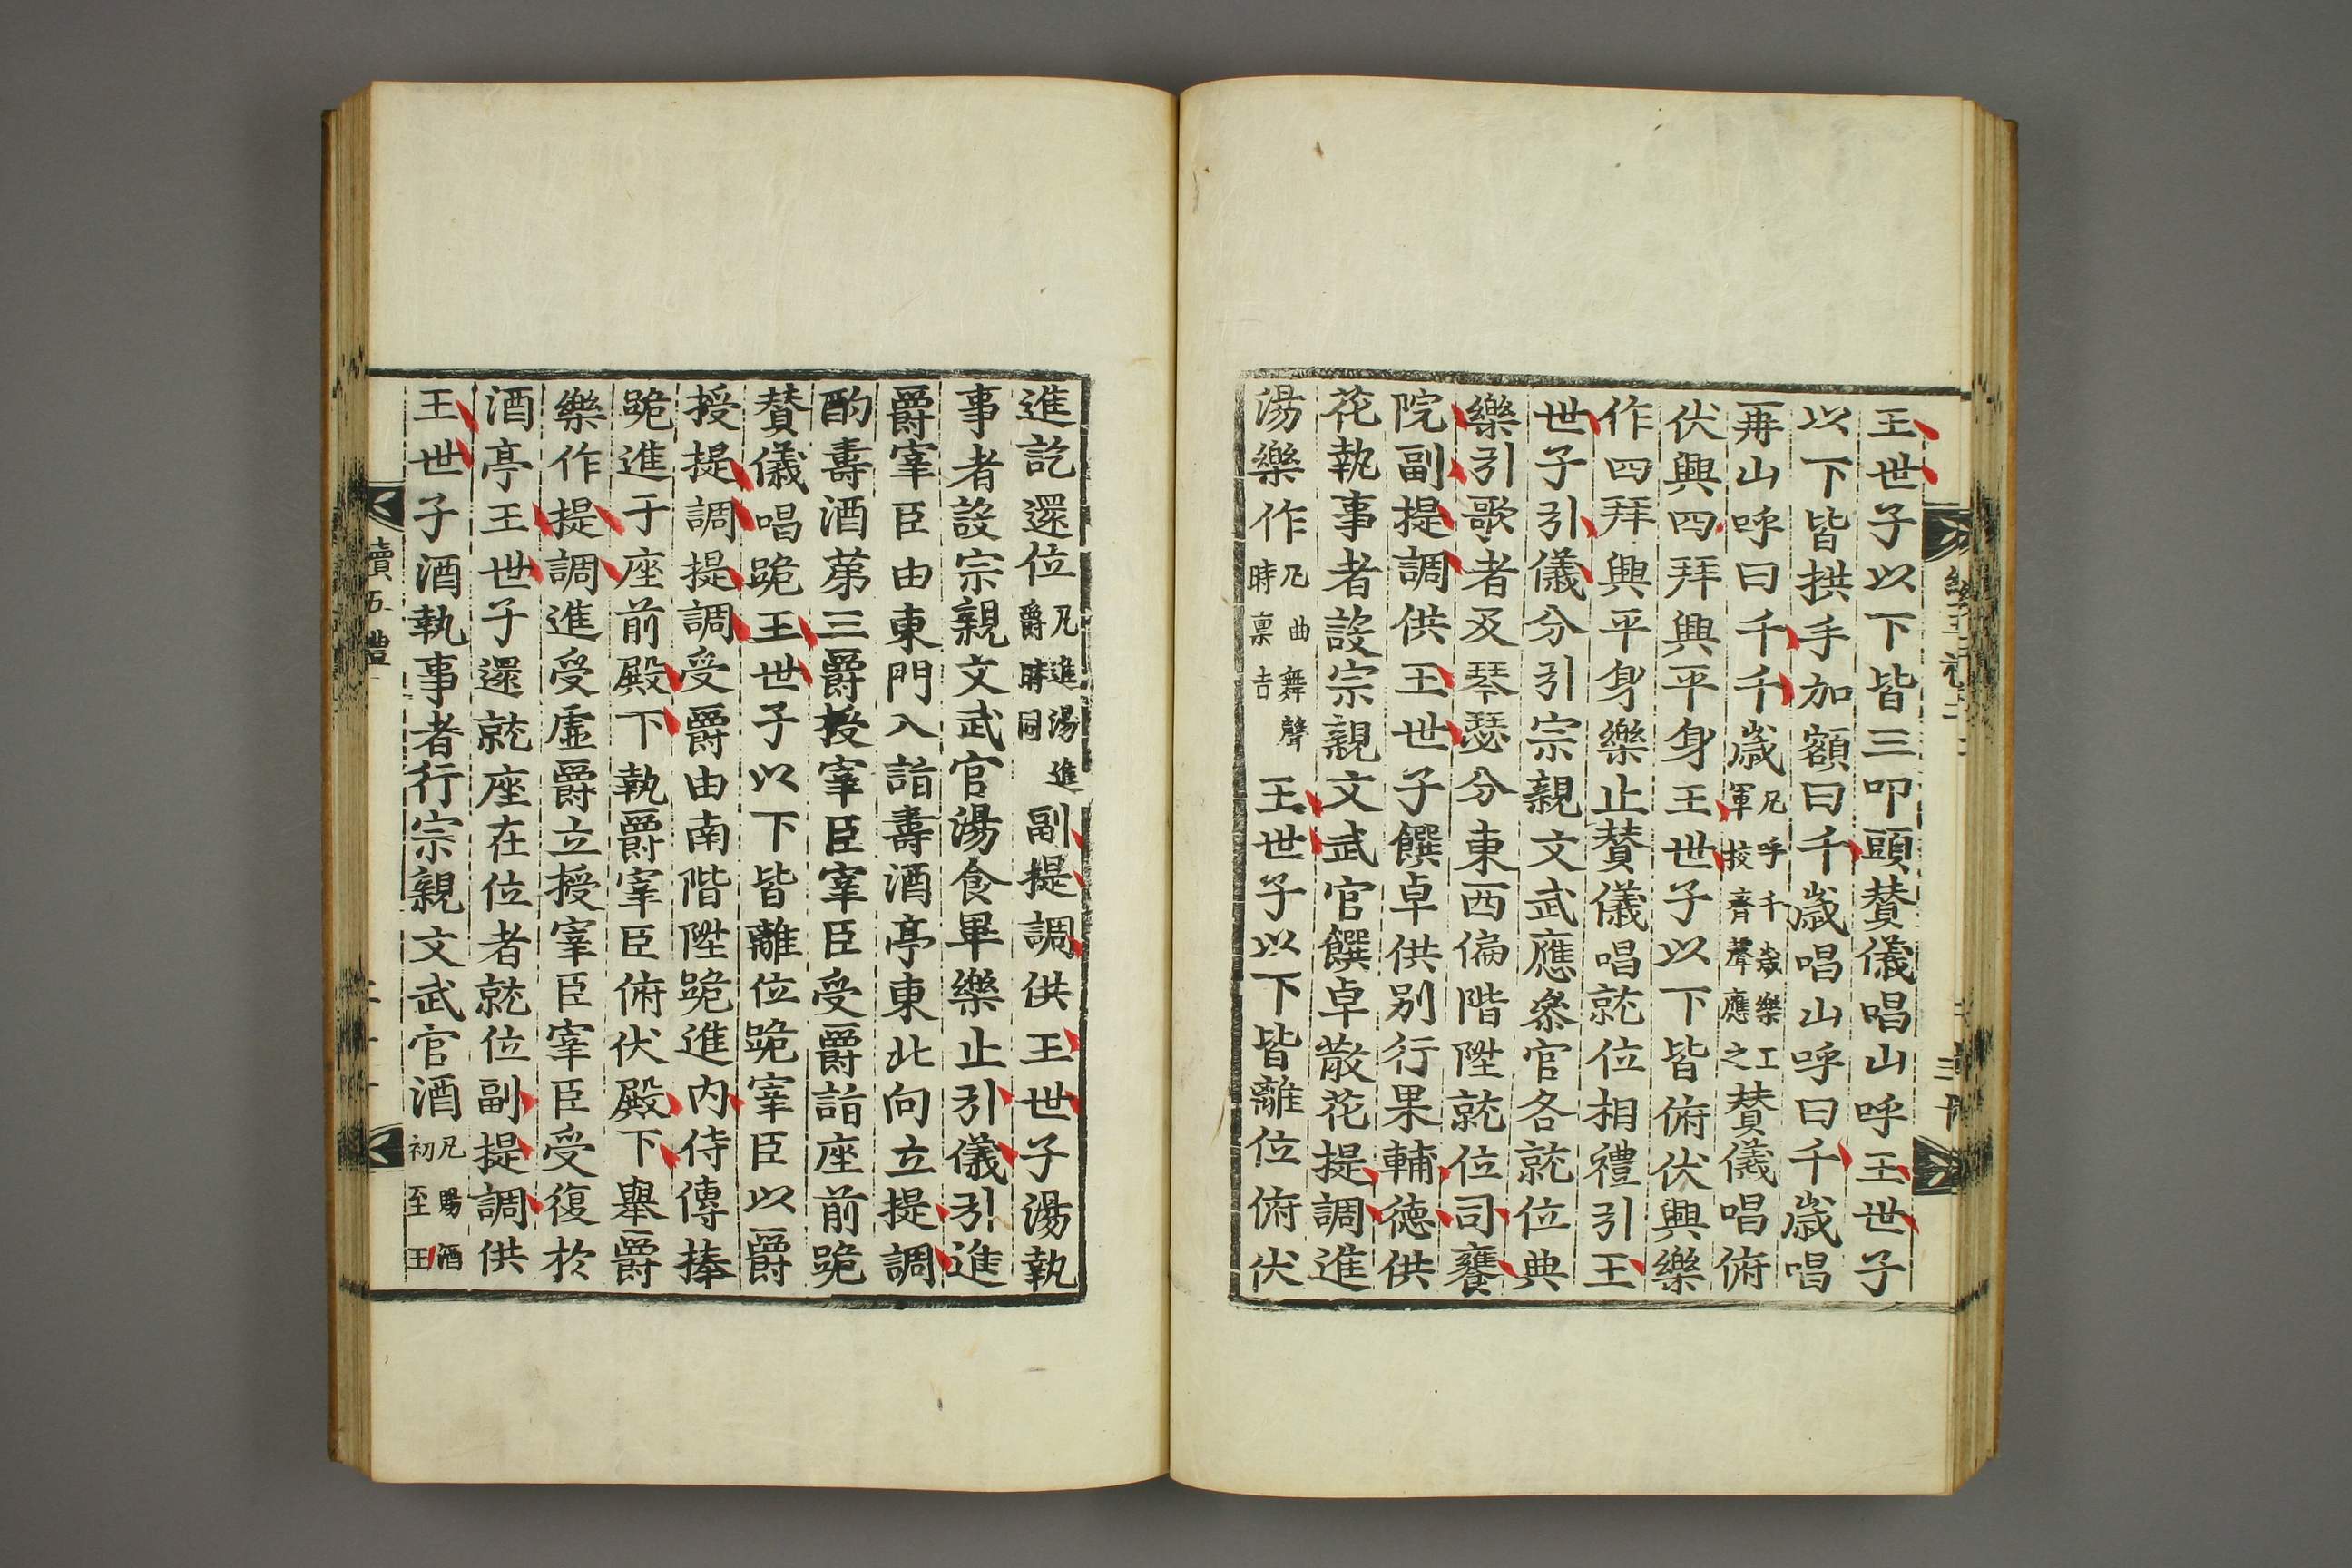 王世子以下皆三叩頭賛儀唱山呼王世子
以下皆拱手加額曰千歲唱山呼曰千歲唱
再山呼曰千千歲凡呼千歲樂工軍校齊聲應之賛儀唱俯
伏興四拜興平身王世子以下皆俯伏興樂
作四拜興平身樂止賛儀唱就位相禮引王
世子引儀分引宗親文武應叅官各就位典
樂引歌者及琴瑟分東西偏階陞就位司饔
院副提調供王世子饌卓供別行果輔德供
花執事者設宗親文武官饌卓散花提調進
湯樂作凡曲舞聲時禀告王世子以下皆離位俯伏
進訖還位凡進湯進爵時同副提調供王世子湯執
事者設宗親文武官湯食畢樂止引儀引進
爵宰臣由東門入詣壽酒亭東北向立提調
酌壽酒苐三爵授宰臣宰臣受爵詣座前跪
賛儀唱跪王世子以下皆離位跪宰臣以爵
授提調提調受爵由南階陞跪進內侍傳捧
跪進于座前殿下執爵宰臣俯伏殿下舉爵
樂作提調進受虛爵立授宰臣宰臣受復於
酒亭王世子還就座在位者就位副提調供
王世子酒執事者行宗親文武官酒凡賜酒初至王
續五禮